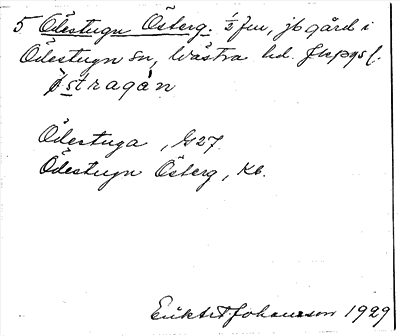 5 Ödestugu Österg. ½ fm, jb gård i
Ödestugu sn, Västra hd. Jkpgs l.
Östragån
Ödestuga, G27.
Ödestugu Österg, Kb.
Johansson 1929